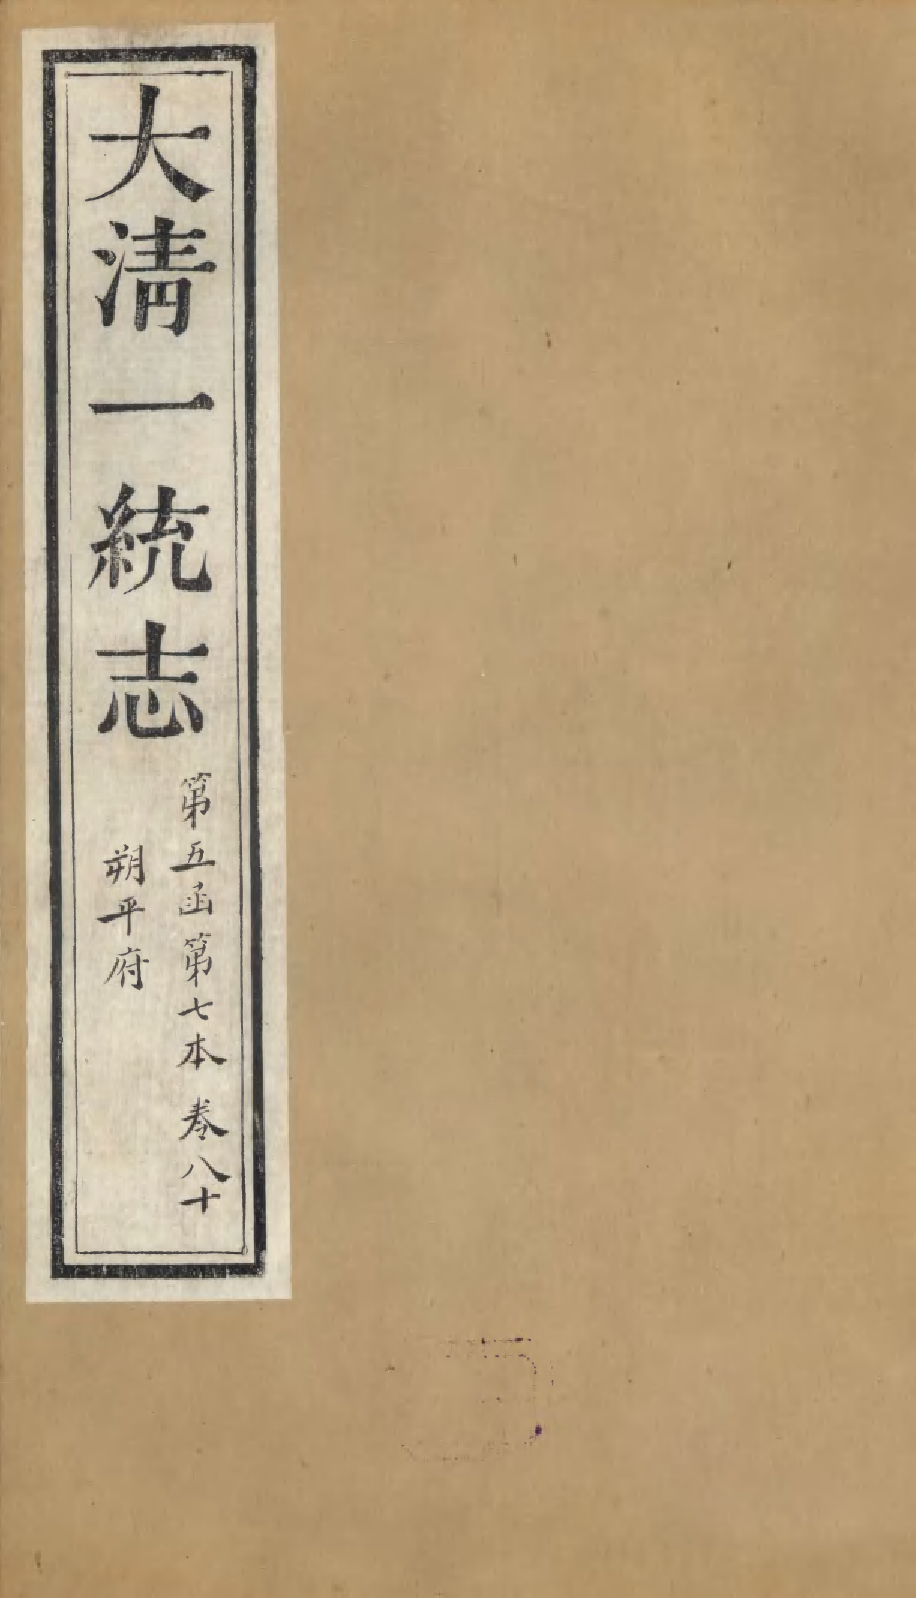 大淸一統志
第五函第七本 卷八十
朔平府